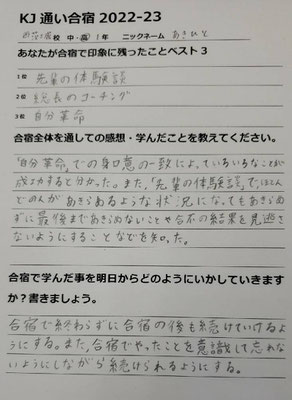 KJ 通い合宿 2022-23
校 中・高 1年 ニックネーム あきひと
あなたが合宿で印象に残ったことベスト3
1位 先輩の体験談
2位 総長のコーチング
3位 自分革命
合宿全体を通しての感想・学んだことを教えてください。
「自分革命」での身口意の一致によっていろいろなことが
成功すると分かった。また、「先輩の体験談」でほとん
どの人があきらめるような状況になってもあきらめ
ずに最後まであきらめないことや合否の結果を見逃さ
ないようにすることなどを知った。
合宿で学んだ事を明日からどのようにいかしていきます
か？書きましょう。
合宿で終わらずに合宿の後も続けていけるよう
にする。また、合宿でやったことを意識して忘れな
いようにしながら続けられるようにする。